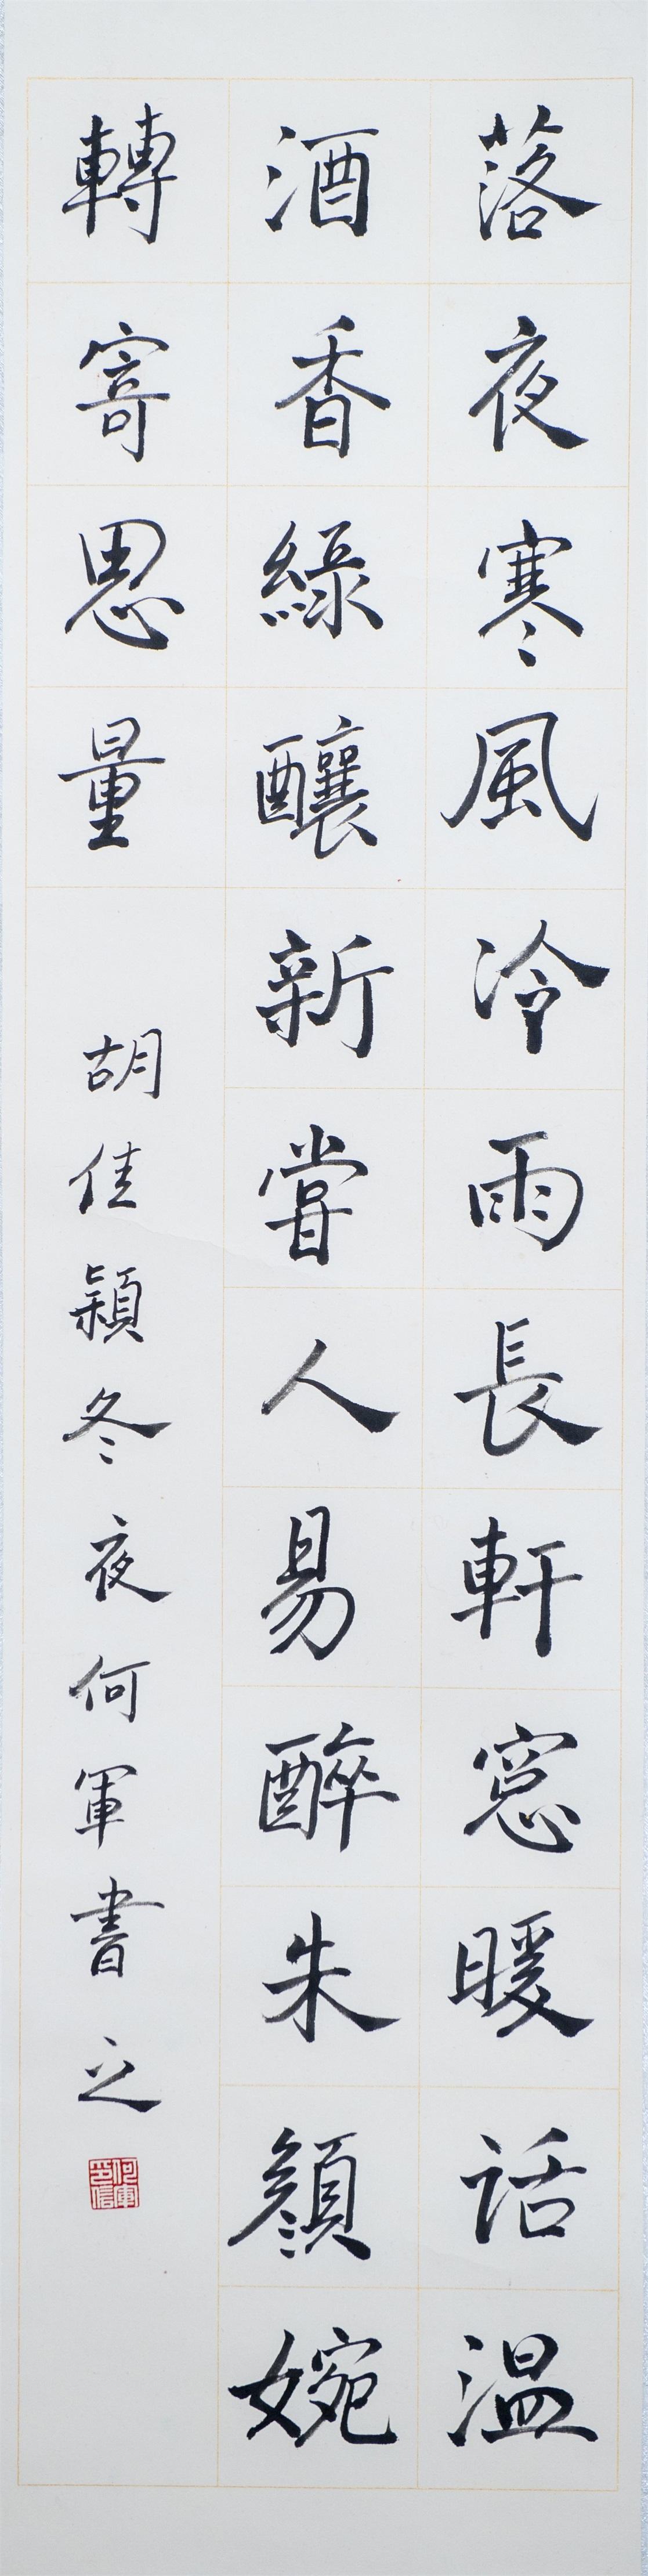 落夜寒風冷雨長軒窓暖話温
酒香綠釀新嘗人易醉朱顏婉
轉寄思量
胡佳穎冬夜何軍書之
何軍印信